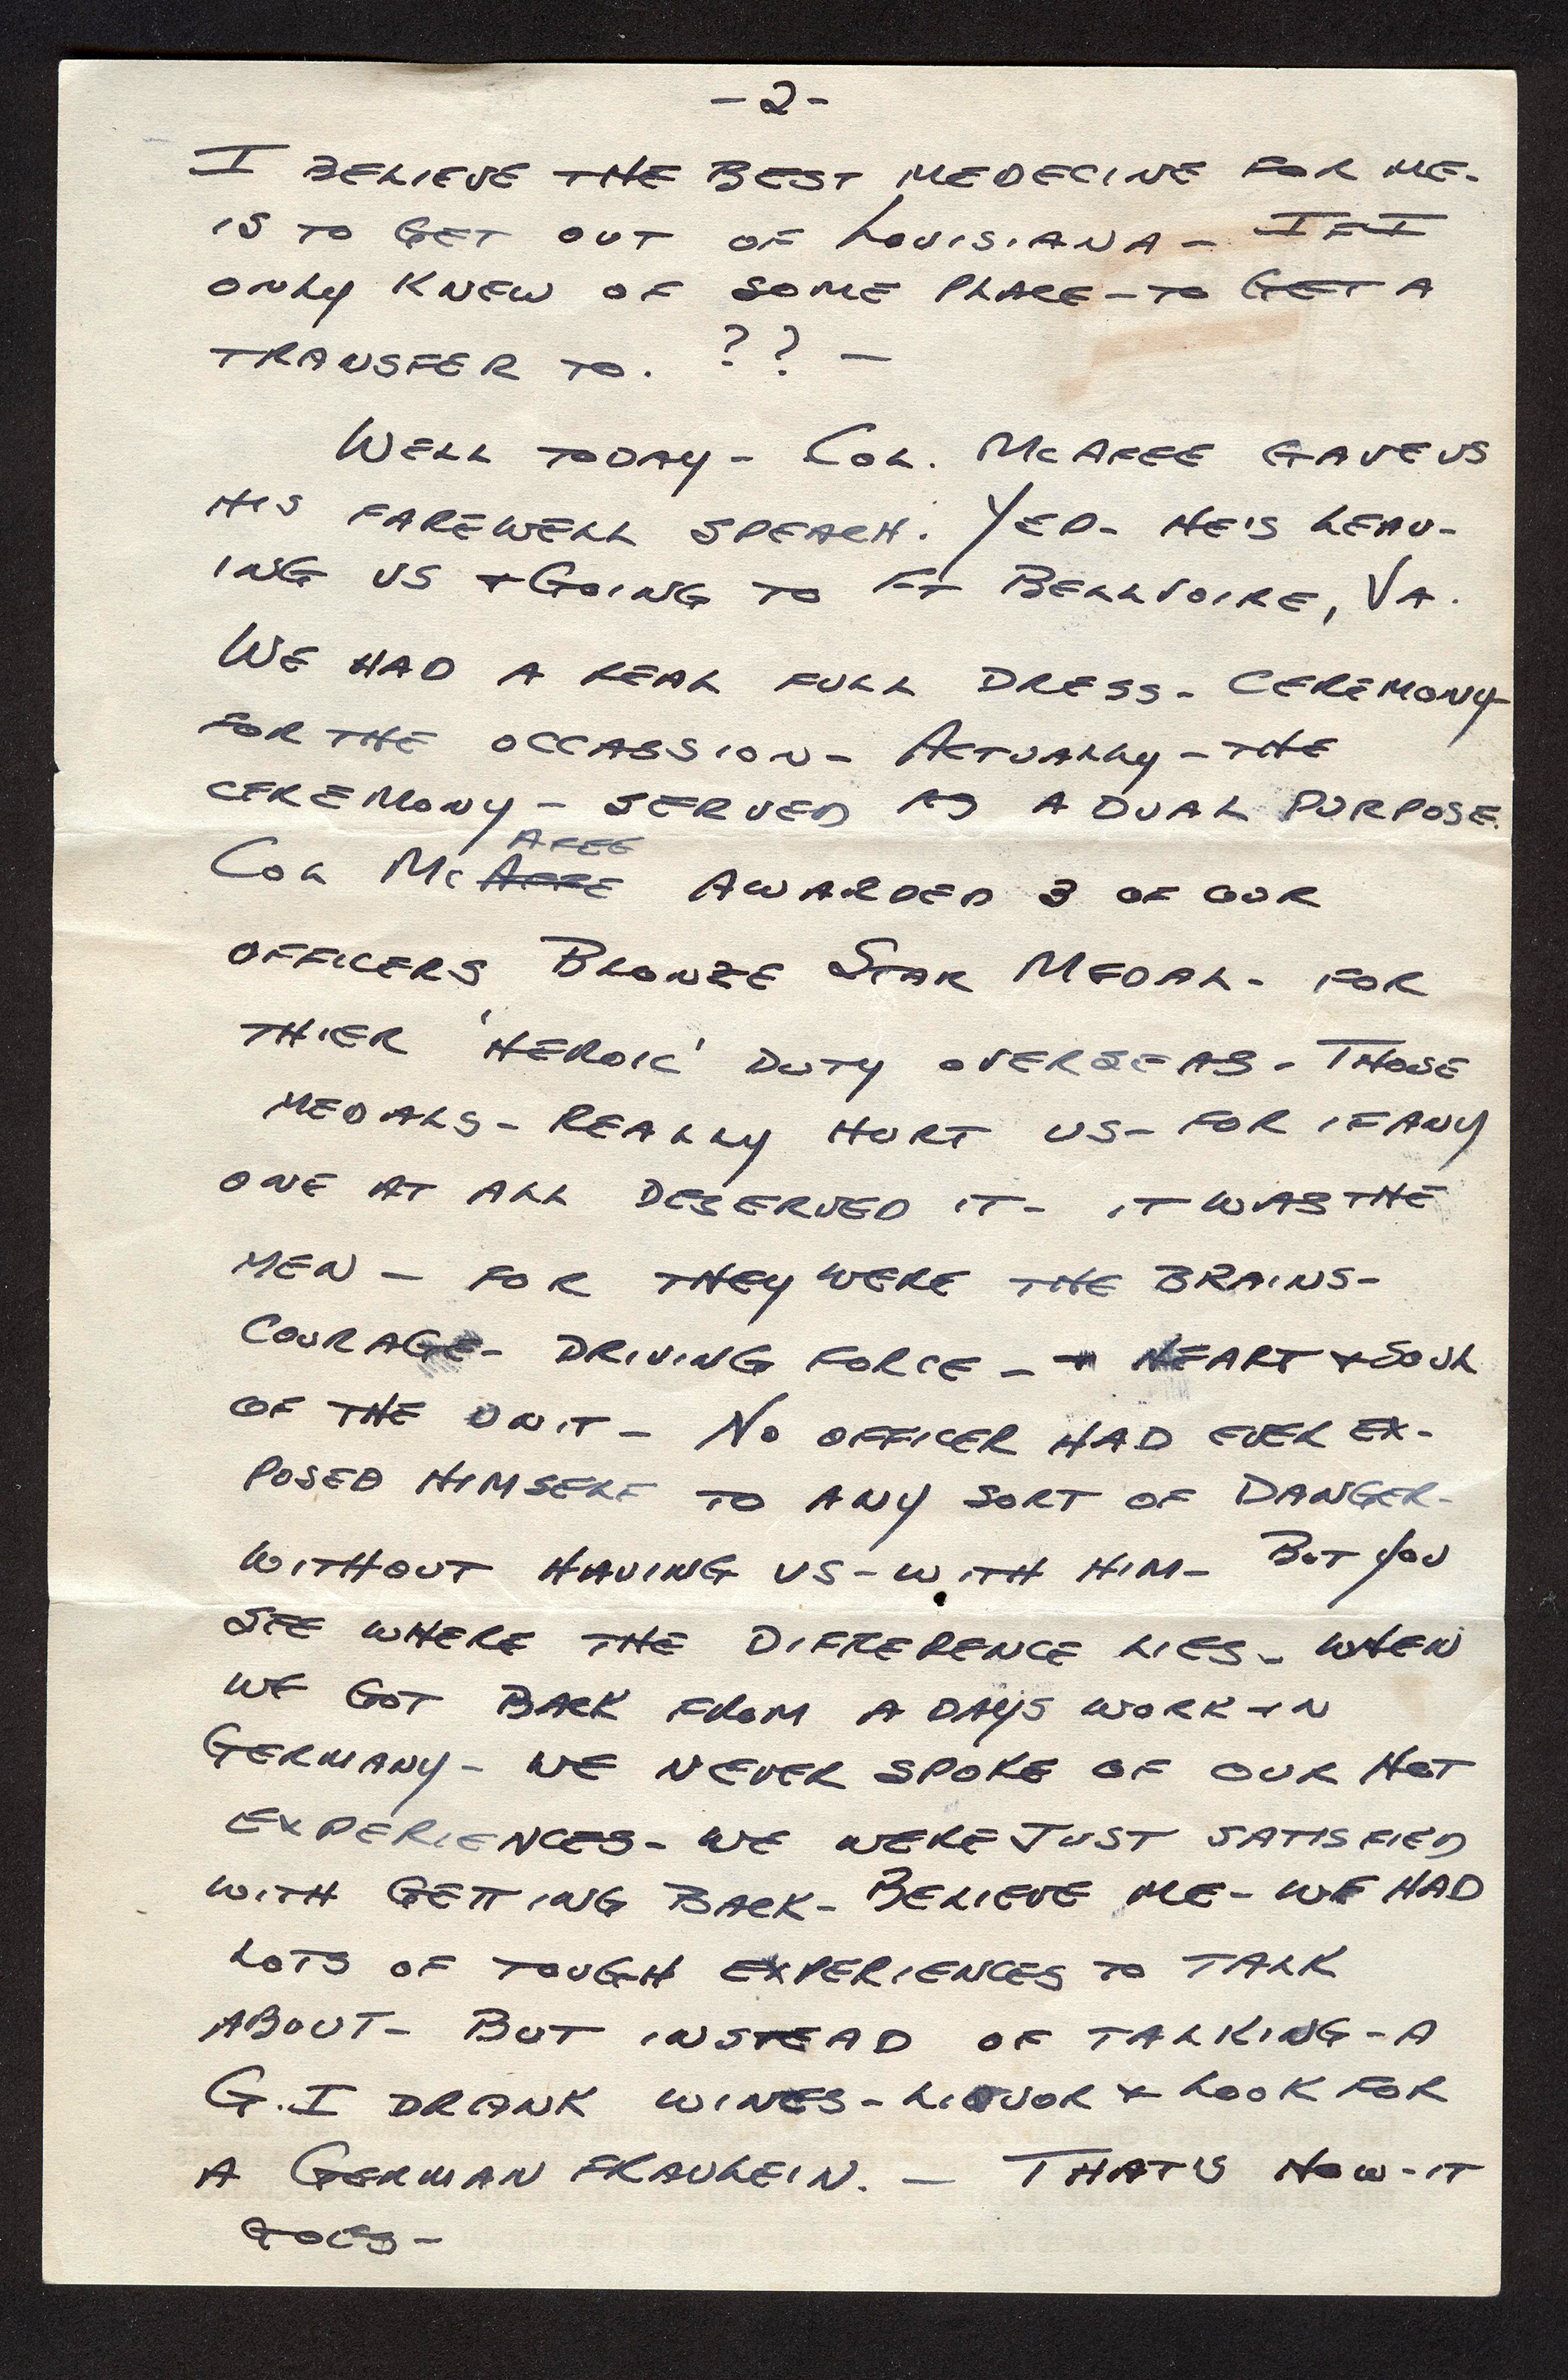 -2-
I BELIEVE THE BEST MEDECINE FOR ME-
IS TO GET OUT OF LOUISIANA - IF I
ONLY KNEW OF SOME PLACE - TO GET A
TRANSFER TO. ? ? -
WELL TODAY - COL. McAFEE GAVE US
HIS FAREWELL SPEACH. YEP- HE'S LEAV-
ING US + GOING TO FT BELLVOIRE, VA.
WE HAD A REAL FULL DRESS - CEREMONY
FOR THE OCCASSION - ACTUALLY - THE
CEREMONY - SERVED AS A DUAL PURPOSE.
AFEE
COL Mc AWARDED 3 OF OUR
OFFICERS BRONZE STAR MEDAL - FOR
THIER 'HEROIC' DUTY OVERSEAS. THOSE
MEDALS - REALLY HURT US - FOR IF ANY
ONE AT ALL DESERVED IT - IT WAS THE
MEN - FOR THEY WERE THE BRAINS -
COURAGE - DRIVING FORCE - + HEART + SOUL
OF THE UNIT - NO OFFICER HAD EVER EX-
POSED HIMSELF TO ANY SORT OF DANGER -
WITHOUT HAVING US - WITH HIM - BUT YOU
SEE WHERE THE DIFFERENCE LIES - WHEN
WE GOT BACK FROM A DAYS WORK - IN
GERMANY - WE NEVER SPOKE OF OUR HOT
EXPERIENCES - WE WERE JUST SATISFIED
WITH GETTING BACK - BELIEVE ME - WE HAD
LOTS OF TOUGH EXPERIENCES TO TALK
ABOUT - BUT INSTEAD OF TALKING - A
G.I DRANK WINES - LIQUOR + LOOK FOR
A GERMAN FRAULEIN. - THAT'S HOW - IT
GOES -